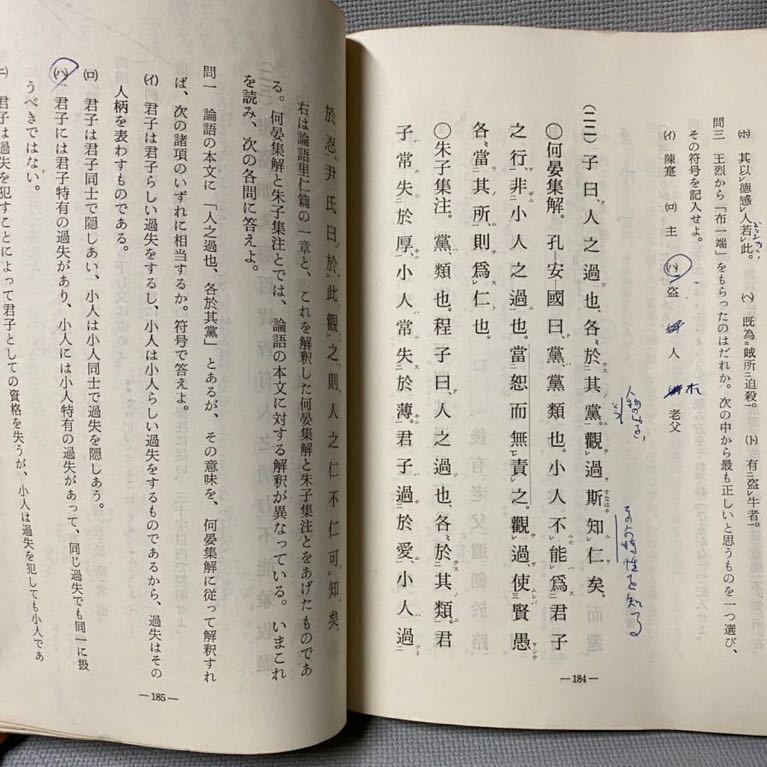 ㋭ 其以徳感人若此。 ㋬ 既為賊所迫殺。 ㋣ 有盗牛者。
問三 王烈から「布一端」をもらったのはだれか。次の中から最も正しいと思うものを一つ選び、
その符号を記入せよ。
㋑ 陳寔 ㋺ 主 ㋩ 盗 人 老父
(二二)子曰、人之過也、各於其黨。觀過斯知仁矣。
その特性を知る
〇何晏集解。孔安國曰、黨、黨類也。小人不能爲君子
之行、非小人之過也。當恕而無責之。觀過、使賢愚
各當其所、則爲仁也。
〇朱子集注。黨、類也。程子曰、人之過也、各於其類。君
子常失於厚、小人常失於薄。君子過於愛、小人過
—184—
於忍、尹氏曰、於此觀之、則人之仁不仁可知矣。
右は論語里仁篇の一章と、これを解釈した何晏集解と朱子集注とをあげたものであ
る。何晏集解と朱子集注とでは、論語の本文に対する解釈が異なっている。いまこれ
を読み、次の各問に答えよ。
問一 論語の本文に「人之過也、各於其黨」とあるが、その意味を、何晏集解に従って解釈すれ
ば、次の諸項のいずれに相当するか。符号で答えよ。
㋑ 君子は君子らしい過失をするし、小人は小人らしい過失をするものであるから、過失はその
人柄を表わすものである。
㋺ 君子は君子同士で隠しあい、小人は小人同士で過失を隠しあう。
㋩ 君子には君子特有の過失があり、小人には小人特有の過失があって、同じ過失でも同一に扱
うべきではない。
㋥ 君子は過失を犯すことによって君子としての資格を失うが、小人は過失を犯しても小人であ
—185—